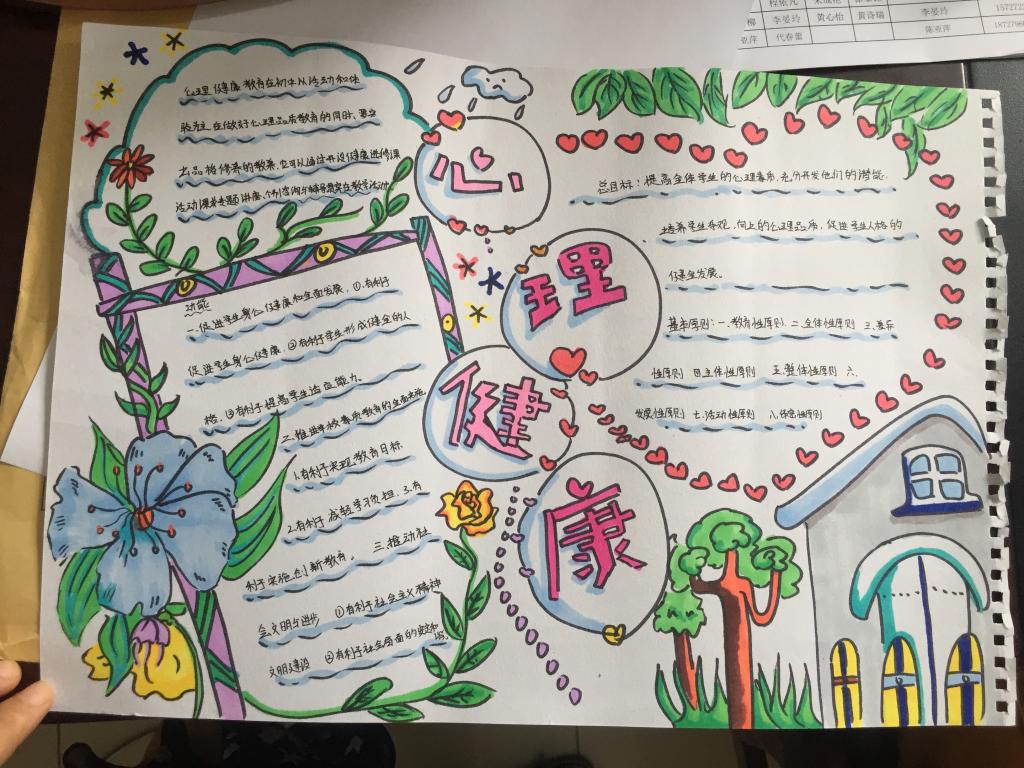 程依凡
柳 李晏玲 黄心怡 黄诗瑞 李晏玲
亚萍 代春蕾 陈亚萍
心理健康
心理健康教育在初中从活动和体
验为主,在做好心理品质教育的同时,要突
出品格修养的教育,它可以通过开设健康选修课
活动课或专题讲座、个别咨询与辅导
总目标:提高全体学生的心理素质,充分开发他们的潜能.
培养学生乐观、向上的心理品质,促进学生人格的
健全发展。
基本原则:一.教育性原则 二.全体性原则 三.差异
性原则 四主体性原则 五.整体性原则 六.
发展性原则 七.活动性原则 八.保密性原则
功能
一.促进学生身心健康和全面发展,①.有利于
促进学生身心健康,②有利于学生形成健全的人
格,③有利于提高学生适应能力。
二.推进学校素质教育的全面实施
1.有利于实现教育目标
2.有利于减轻学习负担,3.有
利于实施创新教育。 三.推动社
会文明与进步 ①有利于社会主义精神
文明建设 ②有利于社会局面的安定和